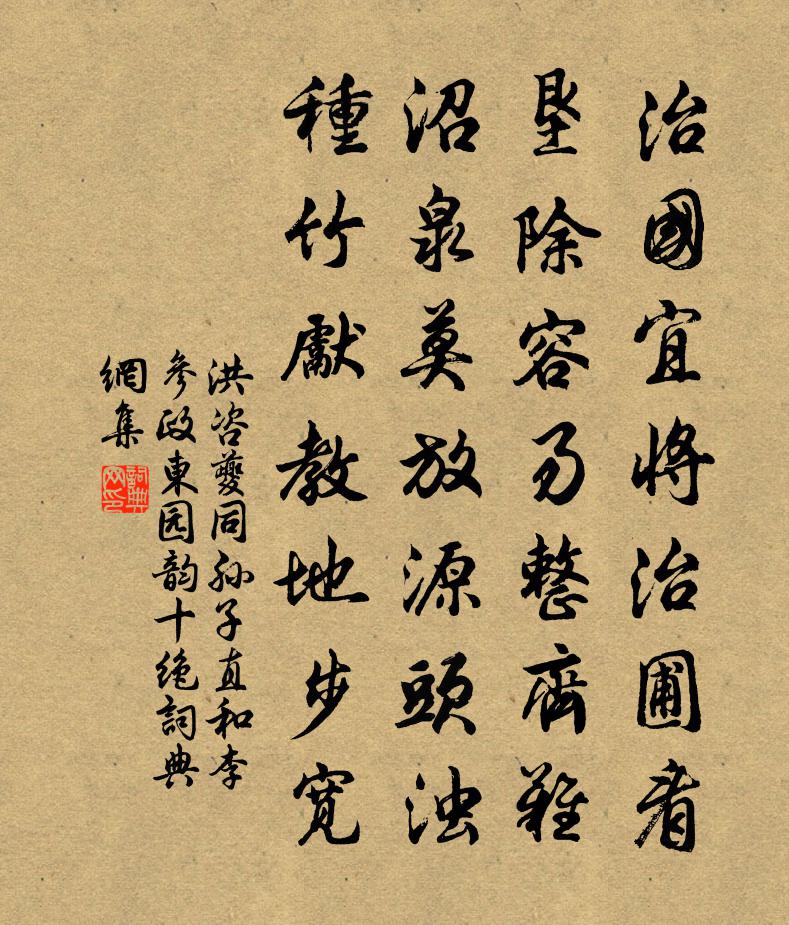 治國宜將治圃看
垦除容易整齊難
沼泉莫放源頭浊
種竹獻教地步宽
洪咨夔同孙子直和李
參政東园韵十绝詞典
網集
詞典
网印